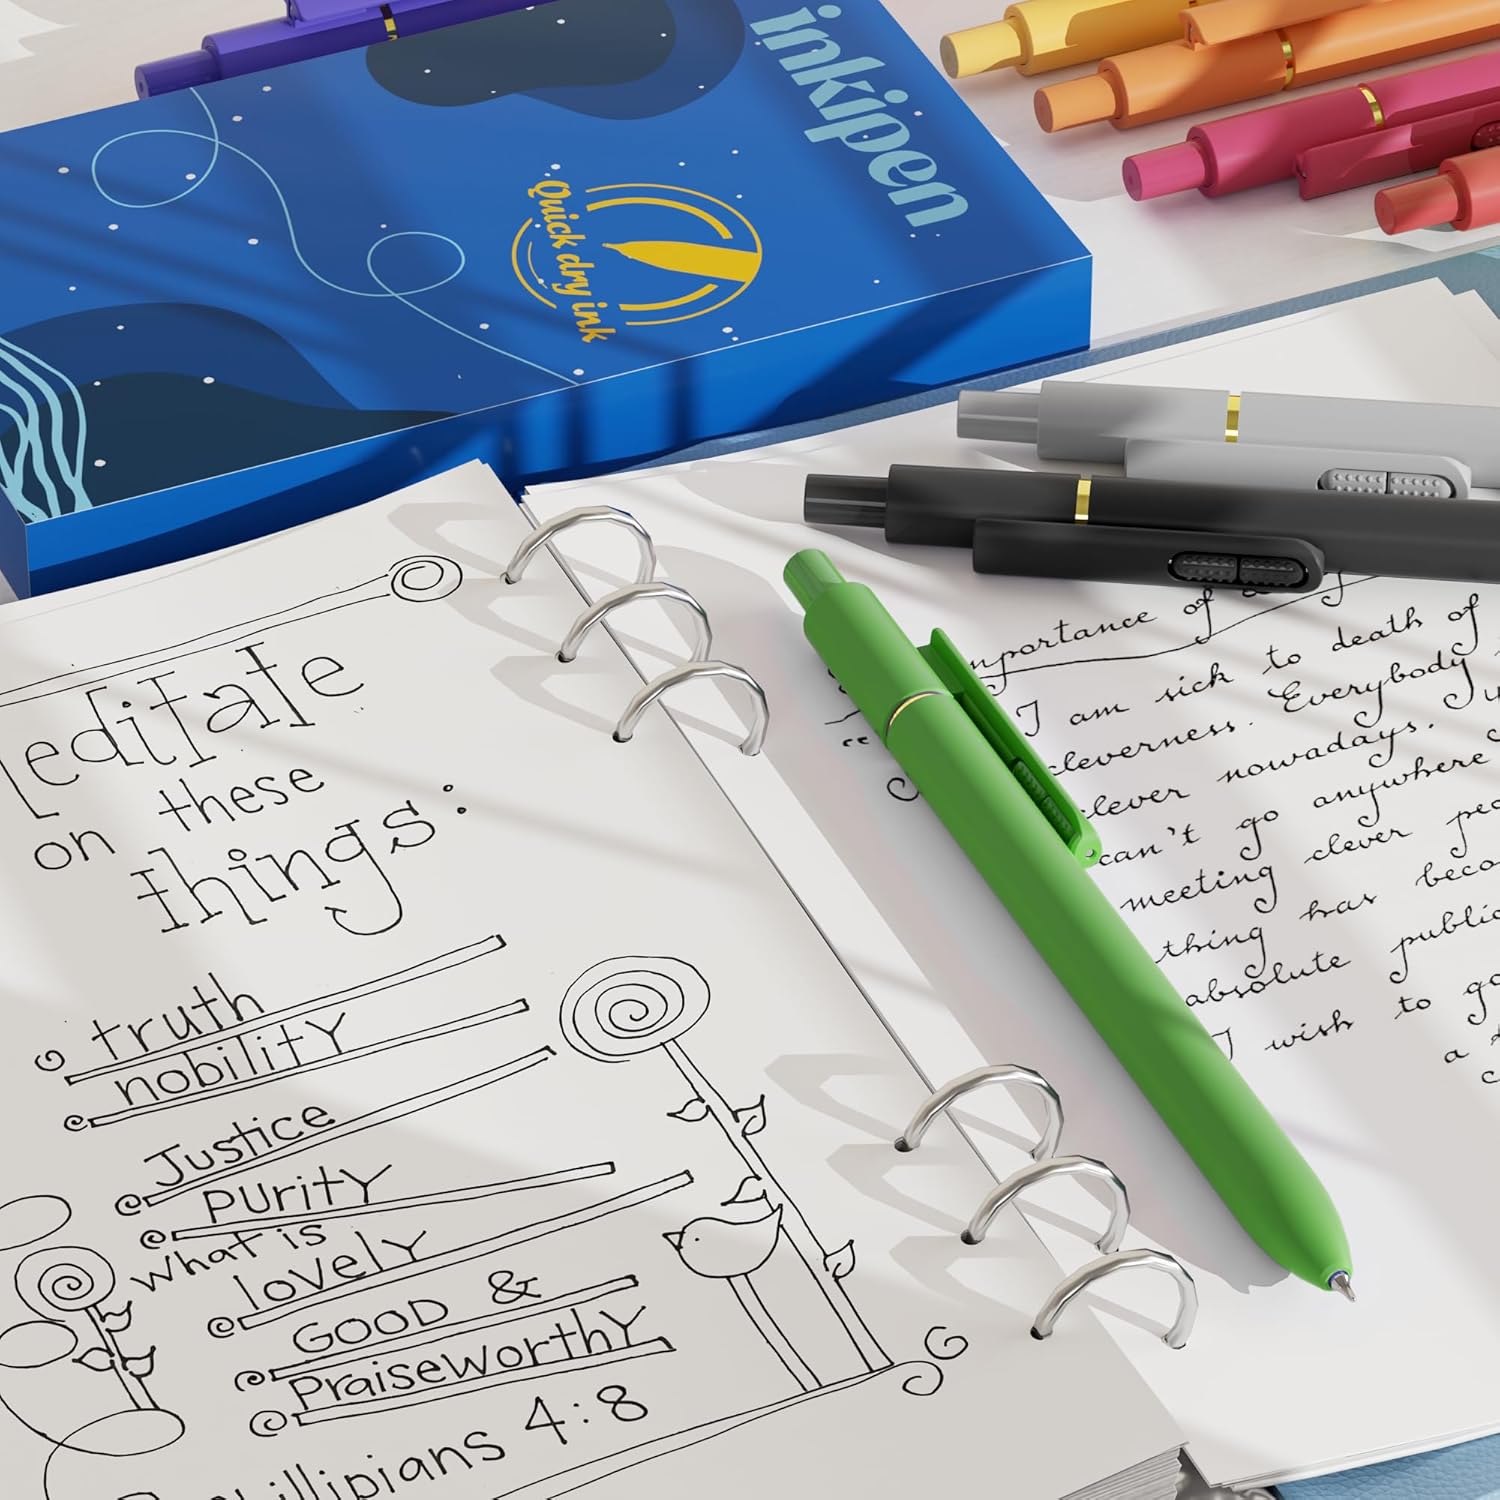 inkipen
Quick dry ink
editate
on these
things:
truth
nobility
Justice
Purity
what is
lovely
GOOD &
Praiseworthy
Phillipians 4:8
G
mportance of
I am sick to death of
cleverness. Everybody
clever nowadays.
can't go anywhere
meeting clever
thing has
absolute
I wish to
a